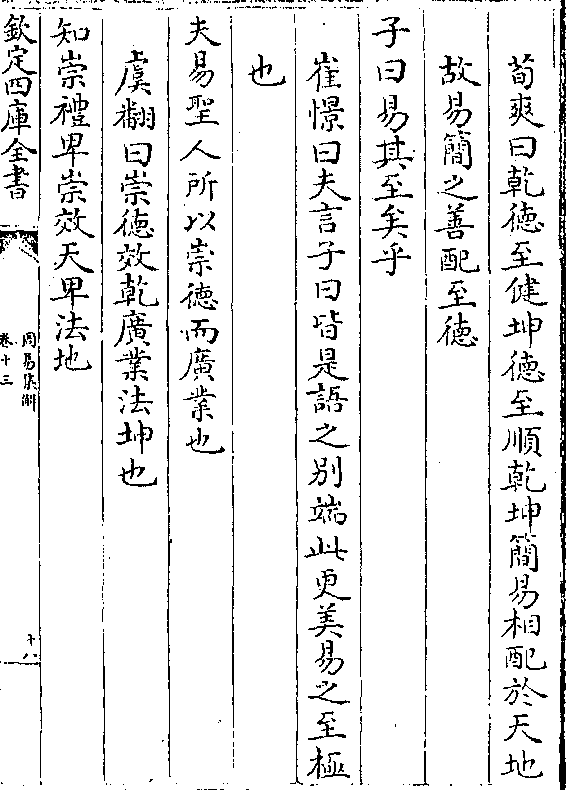 荀爽曰乾徳至健坤徳至順乾坤簡易相配於天地
故易簡之善配至徳
子曰易其至矣乎
崔憬曰夫言子曰皆是語之别端此更美易之至極
也
夫易聖人所以崇徳而廣業也
虞翻曰崇徳效乾廣業法坤也
知崇禮卑崇效天卑法地
欽定四庫全書
周易集解
卷十三
十八